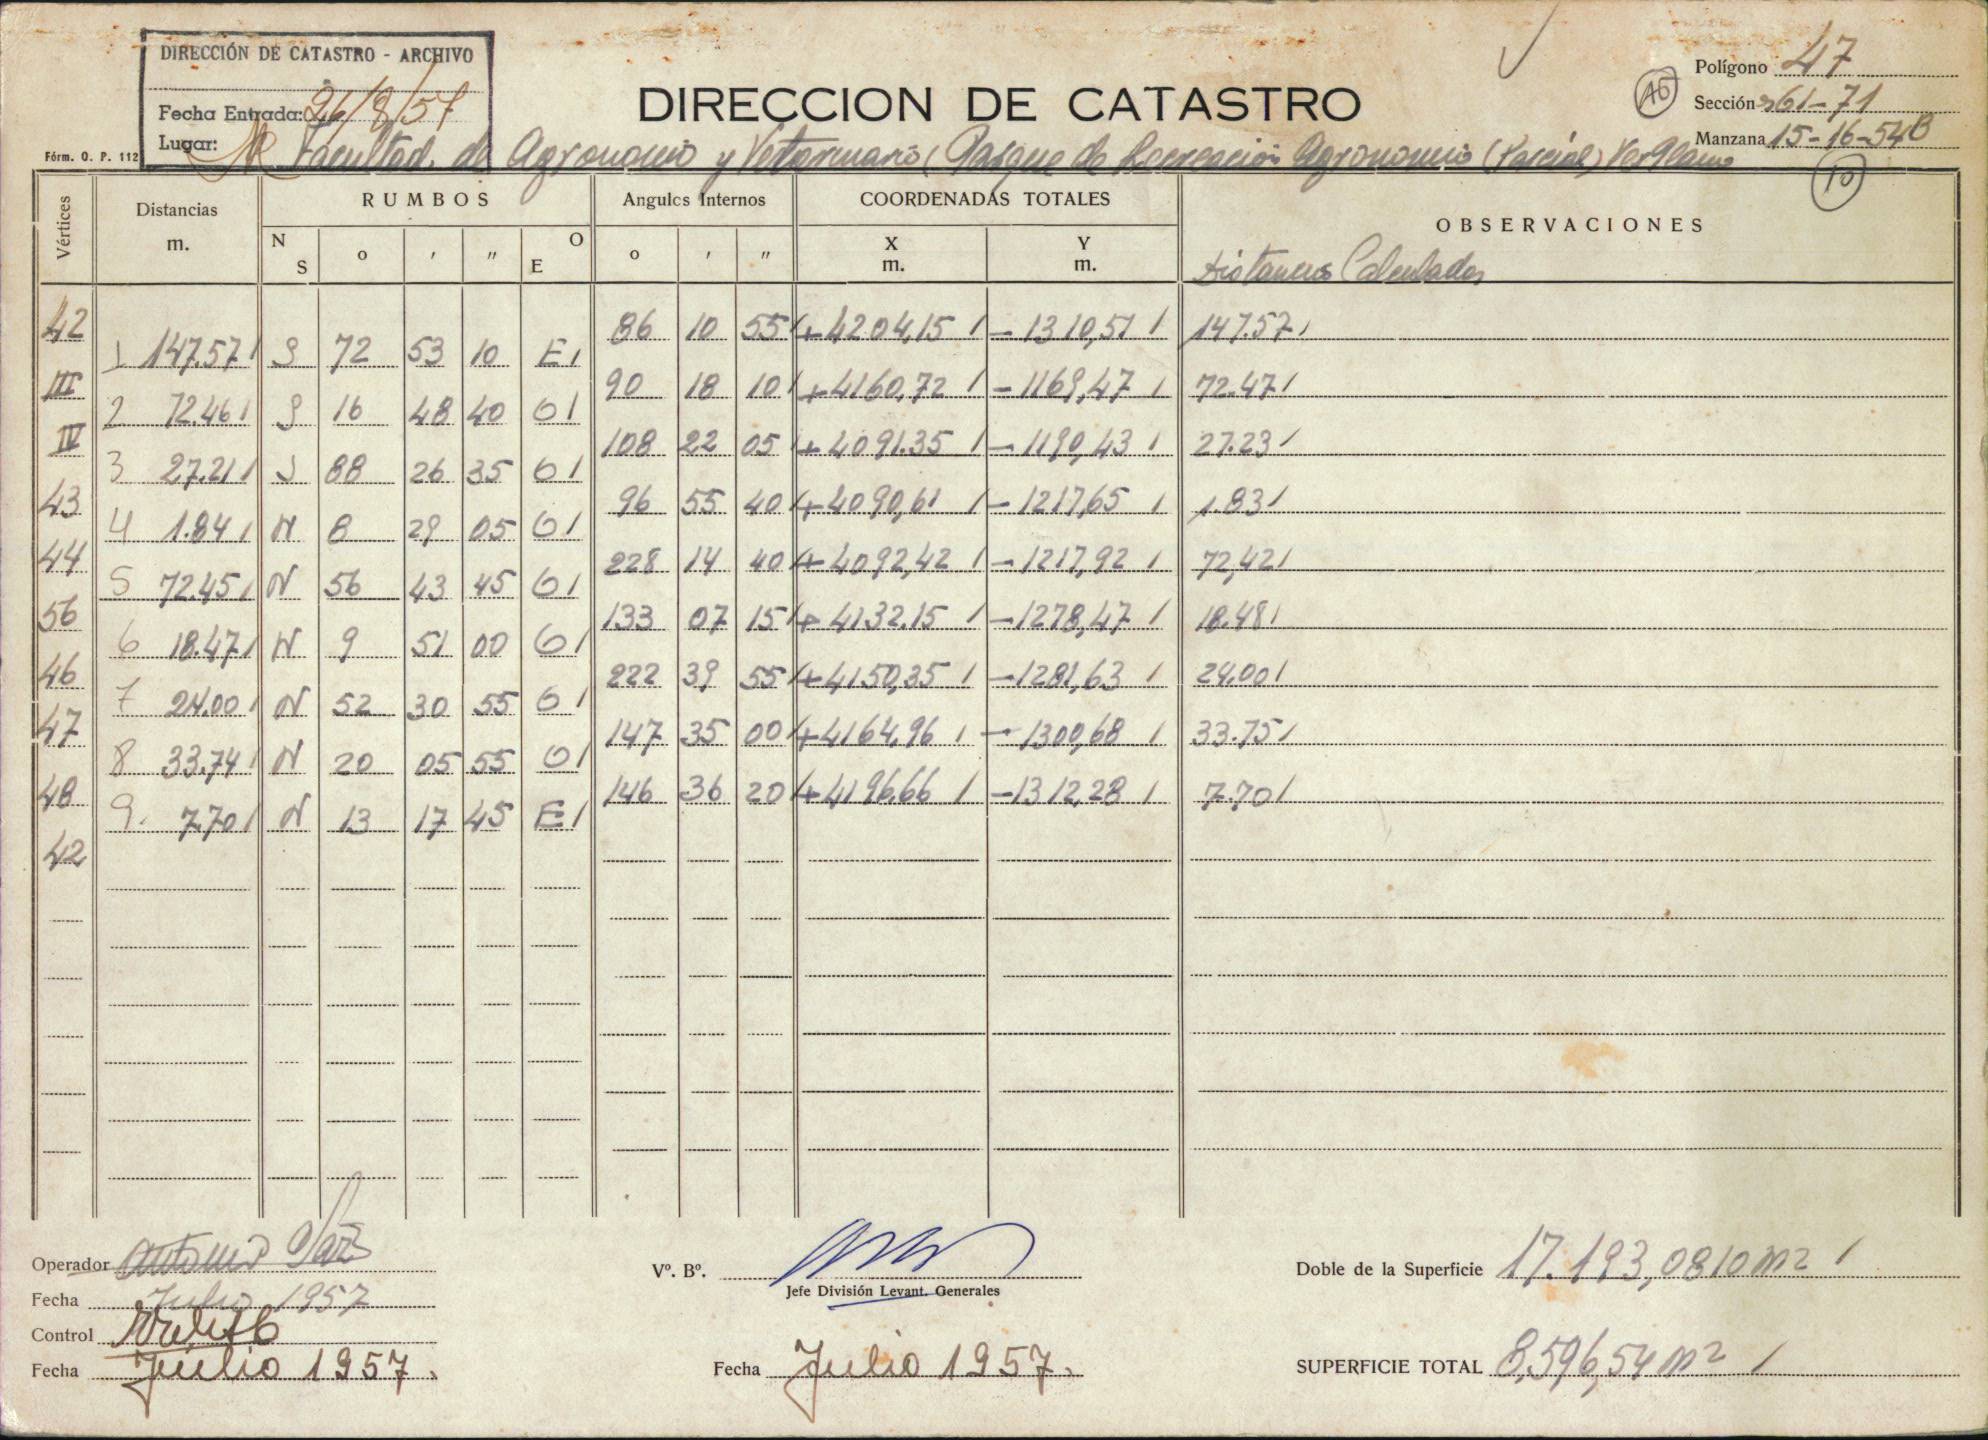 DIRECCIÓN DE CATASTRO - ARCHIVO
Fecha Entrada: 26/8/57
Lugar:
Fórm. O. P. 112
DIRECCION DE CATASTRO
Polígono 47
Sección 61-71
Manzana 15-16-54B
16
Facultad de Agronomia y Veterinaria (Parque de Recreación Agronomia (Parcial)
10
Vértices Distancias m. RUMBOS Angulos Internos COORDENADAS TOTALES OBSERVACIONES
N S ° ' " O E ° ' " X m. Y m.
Distancias Calculadas
42 86 10 55 +4204,15 -1310,51 147.57
1 147.57 S 72 53 10 E
III 90 18 10 +4160,72 -1169,47 72.47
2 72.46 S 16 48 40 O
IV 108 22 05 +4091.35 -1190,43 27.23
3 27.21 S 88 26 35 O
43 96 55 40 +4090,61 -1217,65 1.83
4 1.84 N 8 29 05 O
44 228 14 40 +4092,42 -1217,92 72,42
5 72.45 N 56 43 45 O
56 133 07 15 +4132.15 -1278,47 18.48
6 18.47 N 9 51 00 O
46 222 39 55 +4150,35 -1281,63 24,00
7 24.00 N 52 30 55 O
47 147 35 00 +4164,96 -1300,68 33.75
8 33.74 N 20 05 55 O
48 146 36 20 +4196,66 -1312,28 7.70
9. 7.70 N 13 17 45 E
42
Operador Antonio
Fecha Julio 1957
Control
Fecha Julio 1957.
Vº. Bº.
Jefe División Levant. Generales
Fecha Julio 1957.
Doble de la Superficie 17.193,0810 m2
SUPERFICIE TOTAL 8.596,54 m2